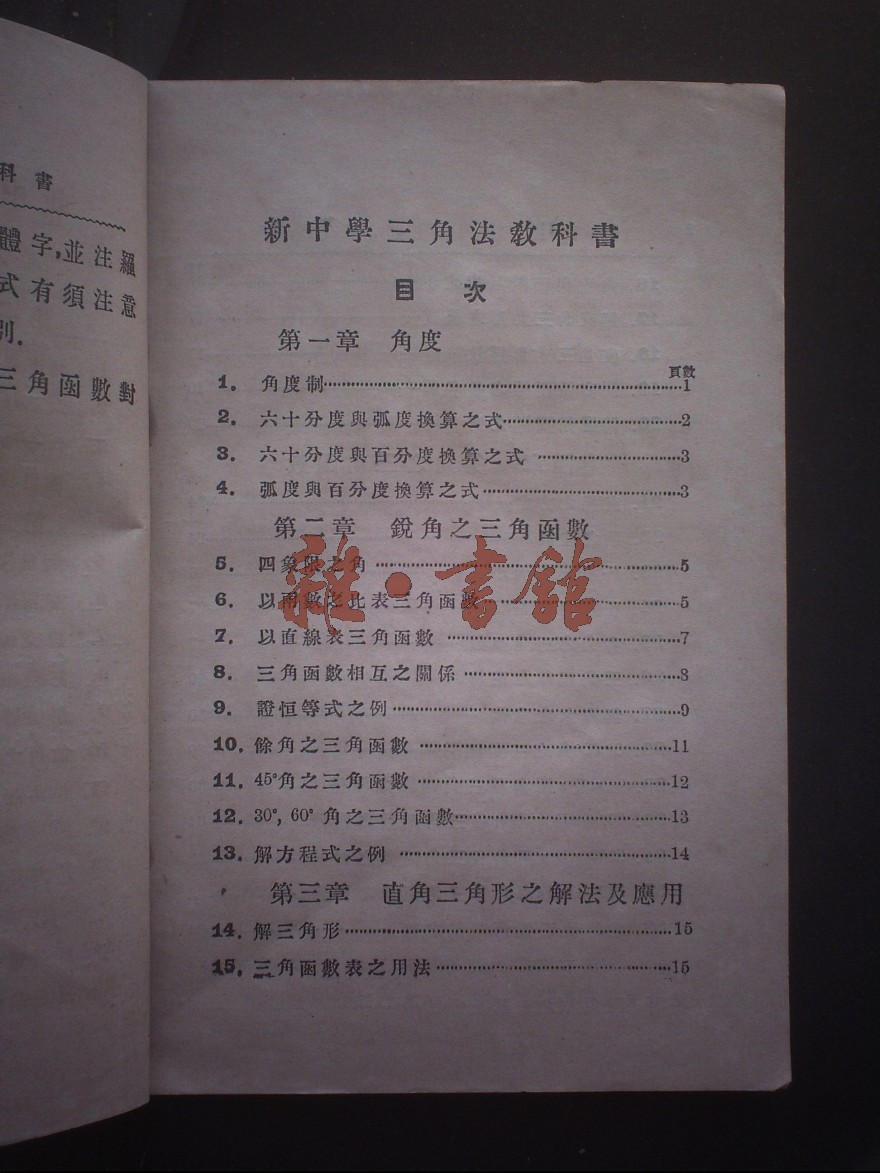 科書
體字,並注羅
式有須注意
別.
三角函數對
新中學三角法教科書
目 次
第一章 角度
頁數
1. 角度制……1
2. 六十分度與弧度換算之式……2
3. 六十分度與百分度換算之式……3
4. 弧度與百分度換算之式……3
第二章 銳角之三角函數
5. 四象限之角……5
6. 以兩數之比表三角函數……5
7. 以直線表三角函數……7
8. 三角函數相互之關係……8
9. 證恒等式之例……9
10. 餘角之三角函數……11
11. 45°角之三角函數……12
12. 30°, 60° 角之三角函數……13
13. 解方程式之例……14
第三章 直角三角形之解法及應用
14. 解三角形……15
15. 三角函數表之用法……15
雜·書館